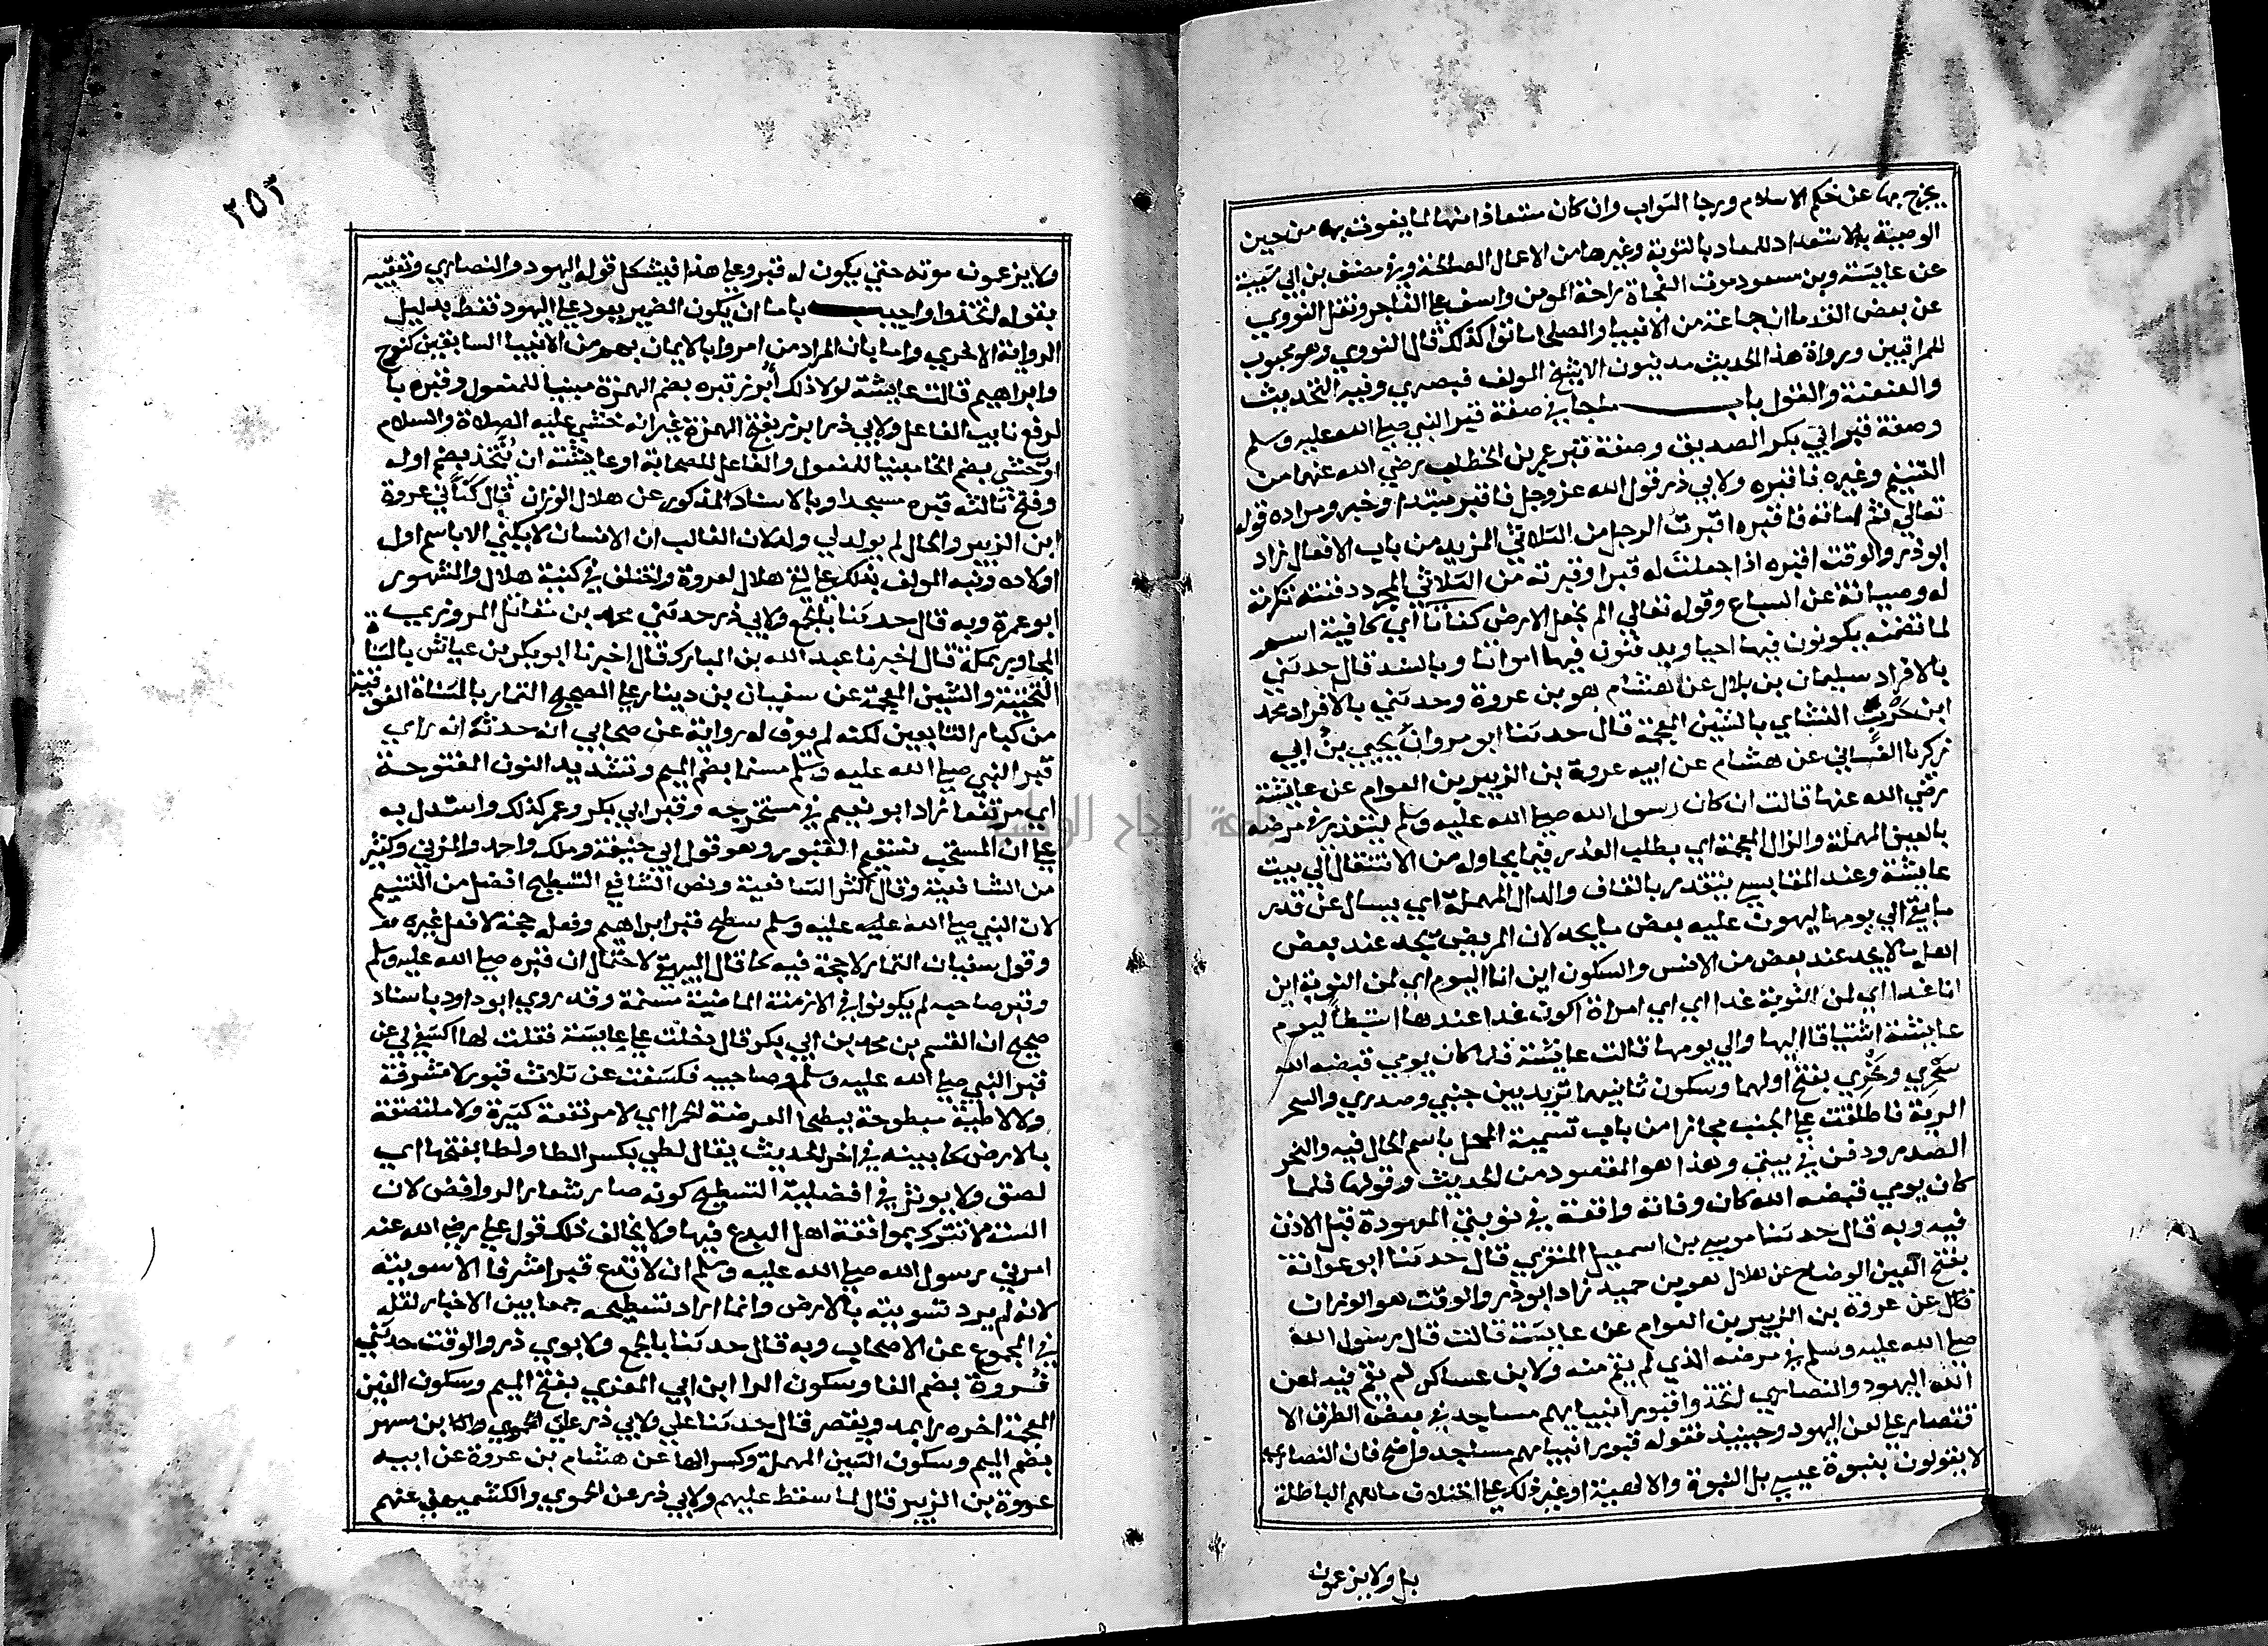 يخرج بها عن حكم الاسلام ورجا الثواب وان كان مستعاذا منها لما يفوت بها من حين
الوصية بالاستعداد للمعاد بالتوبة وغيرها من الاعمال الصالحة وفي مصنف بن ابي شيبة
عن عايشة وبن مسعود موت الفجاة راحة المومن واسف علي الفاجر ونقل النووي
عن بعض القدما ان جماعة من الانبيا والصلحا ماتوا كذلك قال النووي وهو محبوب
للمراقبين ورواة هذا الحديث مدينيون الا شيخ المولف فبصري وفيه التحديث
والعنعنة والقول باب ما جا في صفة قبر النبي صلي الله عليه وسلم
وصفة قبر ابي بكر الصديق وصفة قبر عمر بن الخطاب رضي الله عنهما من
التسنيم وغيره فاقبره ولابي ذر قول الله عز وجل فاقبر مبتدا وخبر ومراده قوله
تعالي ثم اماته فاقبره اقبرت الرجل من الثلاثي المزيد من باب الافعال زاد
ابو ذر والوقت اقبره اذا جعلت له قبرا وقبرته من الثلاثي المجرد دفنته تكرمة
له وصيانة عن السباع وقوله تعالي الم نجعل الارض كفاتا اي كافية اسم
لما تضمنه يكونون فيها احيا ويدفنون فيها امواتا وبالسند قال حدثني
بالافراد سليمان بن بلال عن هشام هو بن عروة وحدثني بالافراد محمد
ابن حرب النشاي بالشين المعجمة قال حدثنا ابو مروان يحيي بن ابي
زكريا الغساني عن هشام عن ابيه عروة بن الزبير بن العوام عن عايشة
رضي الله عنها قالت ان كان رسول الله صلي الله عليه وسلم ليتعذر في مرضه
بالعين المهملة والذال المعجمة اي يطلب العذر فيما يحاوله من الانتقال الي بيت
عايشة وعند القابسي يتقدر بالقاف والدال المهملة اي يسال عن قدر
ما بقي الي يومها ليهون عليه بعض ما يجد لان المريض يجد عند بعض
اهله ما لا يجد عند بعض من الانس والسكون اين انا اليوم اي لمن النوبة اين
انا غدا اي لمن النوبة غدا اي اي امراة اكون غدا عندها استبطا ليوم
عايشة اشتياقا اليها والي يومها قالت عايشة فلما كان يومي قبضه الله
سحري ونحري بفتح اولهما وسكون ثانيهما تريد بين جنبي وصدري والسحر
الرية فاطلقت علي الجنب مجازا من باب تسمية المحل باسم الحال فيه والنحر
الصدر ودفن في بيتي وهذا هو المقصود من الحديث وقولها فلما
كان يومي قبضه الله كان وفاته واقعة في نوبتي المعهودة قبل الاذن
فيه وبه قال حدثنا موسي بن اسمعيل المنقري قال حدثنا ابو عوانة
بفتح العين الوضاح عن هلال هو بن حميد زاد ابو ذر والوقت هو الوزان
قال عن عروة بن الزبير بن العوام عن عايشة قالت قال رسول الله
صلي الله عليه وسلم في مرضه الذي لم يقم منه ولابن عساكر لم يقم فيه لعن
الله اليهود والنصاري اتخذوا قبور انبيايهم مساجد في بعض الطرق الا
قتصار علي لعن اليهود وحينيذ فقوله قبور انبيايهم مساجد واضح فان النصاري
لا يقولون بنبوة عيسي بل البنوة والالهية او غير ذلك علي اختلاف مللهم الباطلة
بل ولا يزعمون
٢٥٣
ولا يزعمون موته حتي يكون له قبر وعلي هذا فيشكل قوله اليهود والنصاري وتعقيبه
بقوله اتخذوا واجيب باما ان يكون الضمير يعود علي اليهود فقط بدليل
الرواية الاخري واما بان المراد من امروا بالايمان بهم من الانبيا السابقين كنوح
وابراهيم قالت عايشة لولا ذلك أبرز قبره بضم الهمزة مبنيا للمفعول وقبره با
لرفع نايب الفاعل ولابي ذر ابرز بفتح الهمزة غير انه خشي عليه الصلاة والسلام
او خشي بضم الخا مبنيا للمفعول والفاعل للصحابة او عايشة ان يُتَّخذ بضم اوله
وفتح ثالثه قبره مسجدا وبالاسناد المذكور عن هلال الوزان قال كناني عروة
ابن الزبير والحال لم يولد لي ولد لان الغالب ان الانسان لا يكني الا باسم اول
اولاده ونبه المولف بذلك علي لقي هلال لعروة واختلف في كنية هلال والمشهور
ابو عمرة وبه قال حدثنا بالجمع ولابي ذر حدثني محمد بن مقاتل المروزي
المجاور بمكة قال اخبرنا عبد الله بن المبارك قال اخبرنا ابو بكر بن عياش بالمثناة
التحتية والشين المعجمة عن سفيان بن دينار علي الصحيح التمار بالمثناة الفوقية
من كبار التابعين لكنه لم يعرف له رواية عن صحابي انه حدثه انه راي
قبر النبي صلي الله عليه وسلم مسنما بضم الميم وتشديد النون المفتوحة
اي مرتفعا زاد ابو نعيم في مستخرجه وقبر ابي بكر وعمر كذلك واستدل به
علي ان المستحب تسنيم القبور وهو قول ابي حنيفة وملك واحمد والمزني وكثير
من الشافعية وقال اكثر الشافعية ونص الشافعي التسطيح افضل من التسنيم
لان النبي صلي الله عليه عليه وسلم سطح قبر ابراهيم وفعله حجة لا فعل غيره
وقول سفيان التمار لا حجة فيه كما قال البيهقي لاحتمال ان قبره صلي الله عليه وسلم
وقبر صاحبيه لم يكونوا في الازمنة الماضية مسنمة وقد روي ابو داود باسناد
صحيح ان القسم بن محمد بن ابي بكر قال دخلت علي عايشة فقلت لها اكشفي لي عن
قبر النبي صلي الله عليه وسلم وصاحبيه فكشفت عن ثلاث قبور لا مشرفة
ولا لاطية مبطوحة ببطحا العرصة الحمرا اي لا مرتفعة كثيرة ولا ملتصقة
بالارض كما بينه في اخر الحديث يقال لطي بكسر الطا ولطا بفتحها اي
لصق ولا يوثر في افضلية التسطيح كونه صار شعار الروافض لان
السنة لا تترك بموافقة اهل البدع فيها ولا يخالف ذلك قول علي رضي الله عنه
امرني رسول الله صلي الله عليه وسلم ان لا تدع قبرا مشرفا الا سويته
لانه لم يرد تسويته بالارض وانما اراد تسطيحه جمعا بين الاخبار نقله
في المجموع عن الاصحاب وبه قال حدثنا بالجمع ولابوي ذر والوقت حدثني
فروة بضم الفا وسكون الرا ابن ابي المغري بفتح الميم وسكون الغين
المعجمة اخره را يمد ويقصر قال حدثنا علي ولابي ذر علي بن مسهر
بضم الميم وسكون السين المهملة وكسر الها عن هشام بن عروة عن ابيه
عروة بن الزبير قال لما سقط عليهم ولابي ذر عن الحموي والكشميهني عنهم